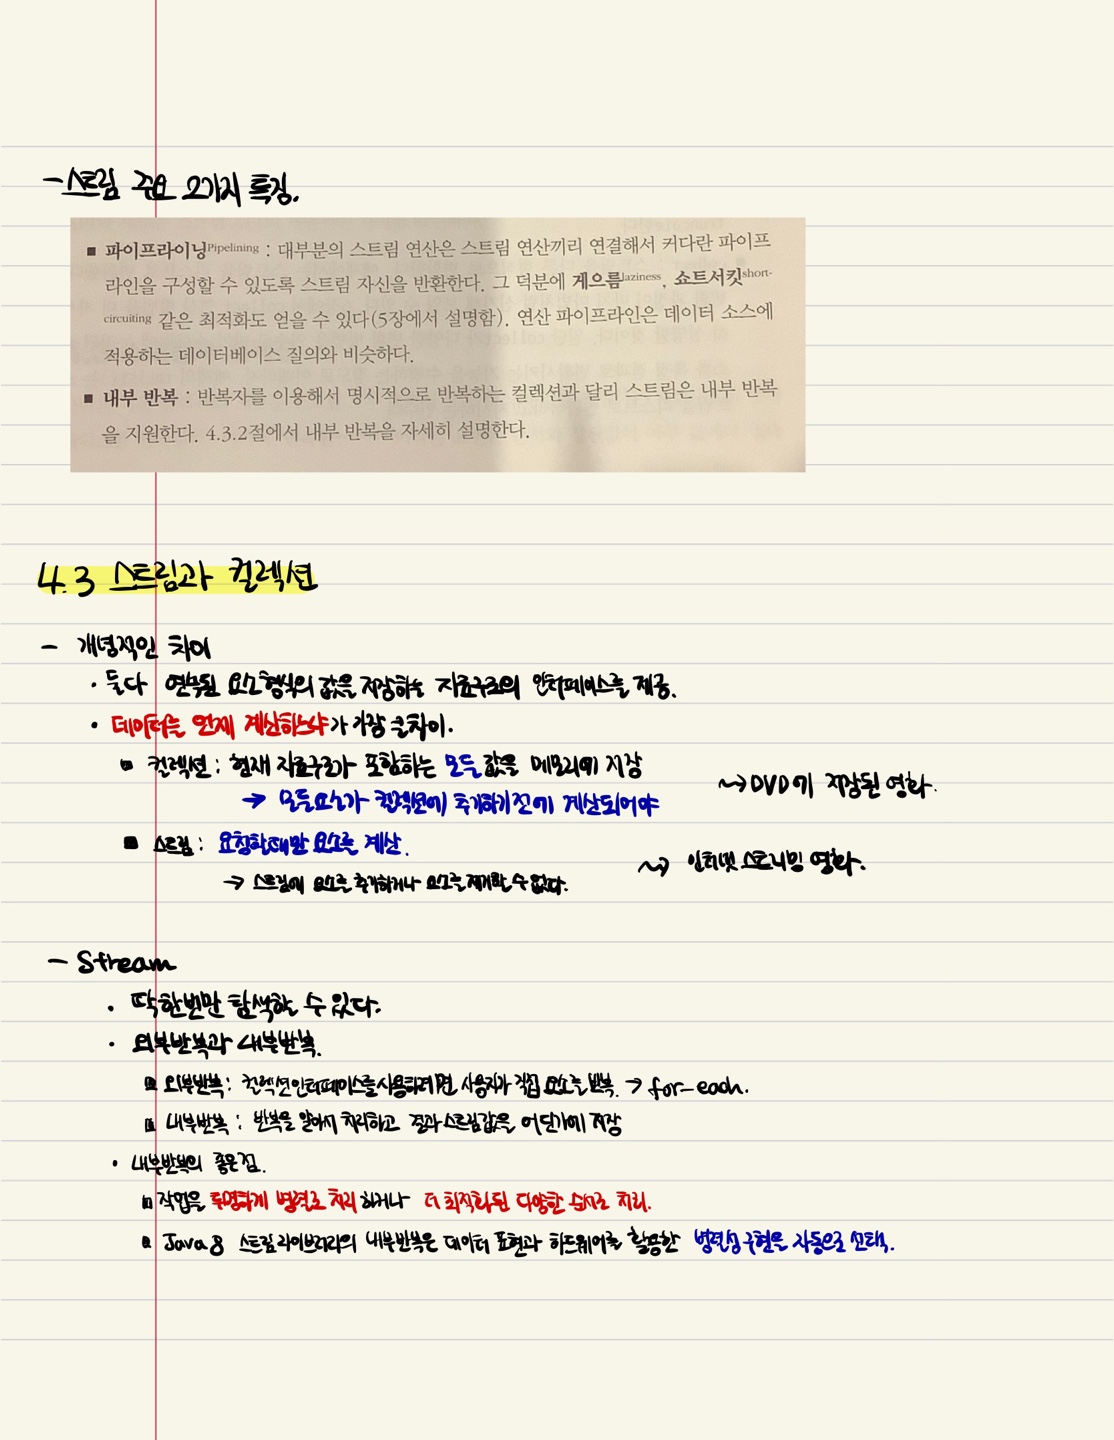 - 스트림 주요 2가지 특징.
■ 파이프라이닝Pipelining : 대부분의 스트림 연산은 스트림 연산끼리 연결해서 커다란 파이프
라인을 구성할 수 있도록 스트림 자신을 반환한다. 그 덕분에 게으름laziness, 쇼트서킷short-
circuiting 같은 최적화도 얻을 수 있다(5장에서 설명함). 연산 파이프라인은 데이터 소스에
적용하는 데이터베이스 질의와 비슷하다.
■ 내부 반복 : 반복자를 이용해서 명시적으로 반복하는 컬렉션과 달리 스트림은 내부 반복
을 지원한다. 4.3.2절에서 내부 반복을 자세히 설명한다.
4.3 스트림과 컬렉션
- 개념적인 차이
· 둘다 연속된 요소형식의 값을 저장하는 자료구조의 인터페이스를 제공.
· 데이터를 언제 계산하느냐가 가장 큰차이.
■ 컬렉션 : 현재 자료구조가 포함하는 모든 값을 메모리에 저장
→ 모든요소가 컬렉션에 추가하기전에 계산되어야
~> DVD에 저장된 영화.
■ 스트림 : 요청할때만 요소를 계산.
~> 인터넷 스트리밍 영화.
→ 스트림에 요소를 추가하거나 요소를 제거할 수 없다.
- Stream
· 딱 한번만 탐색할 수 있다.
· 외부반복과 내부반복.
■ 외부반복 : 컬렉션인터페이스를 사용하려면 사용자가 직접 요소를 반복. → for-each.
■ 내부반복 : 반복을 알아서 처리하고 결과스트림값을 어딘가에 저장
· 내부반복의 좋은점.
■ 작업을 투명하게 병렬로 처리 하거나 더 최적화된 다양한 순서로 처리.
■ Java 8 스트림라이브러리의 내부반복은 데이터 표현과 하드웨어를 활용한 병렬성구현을 자동으로 선택.